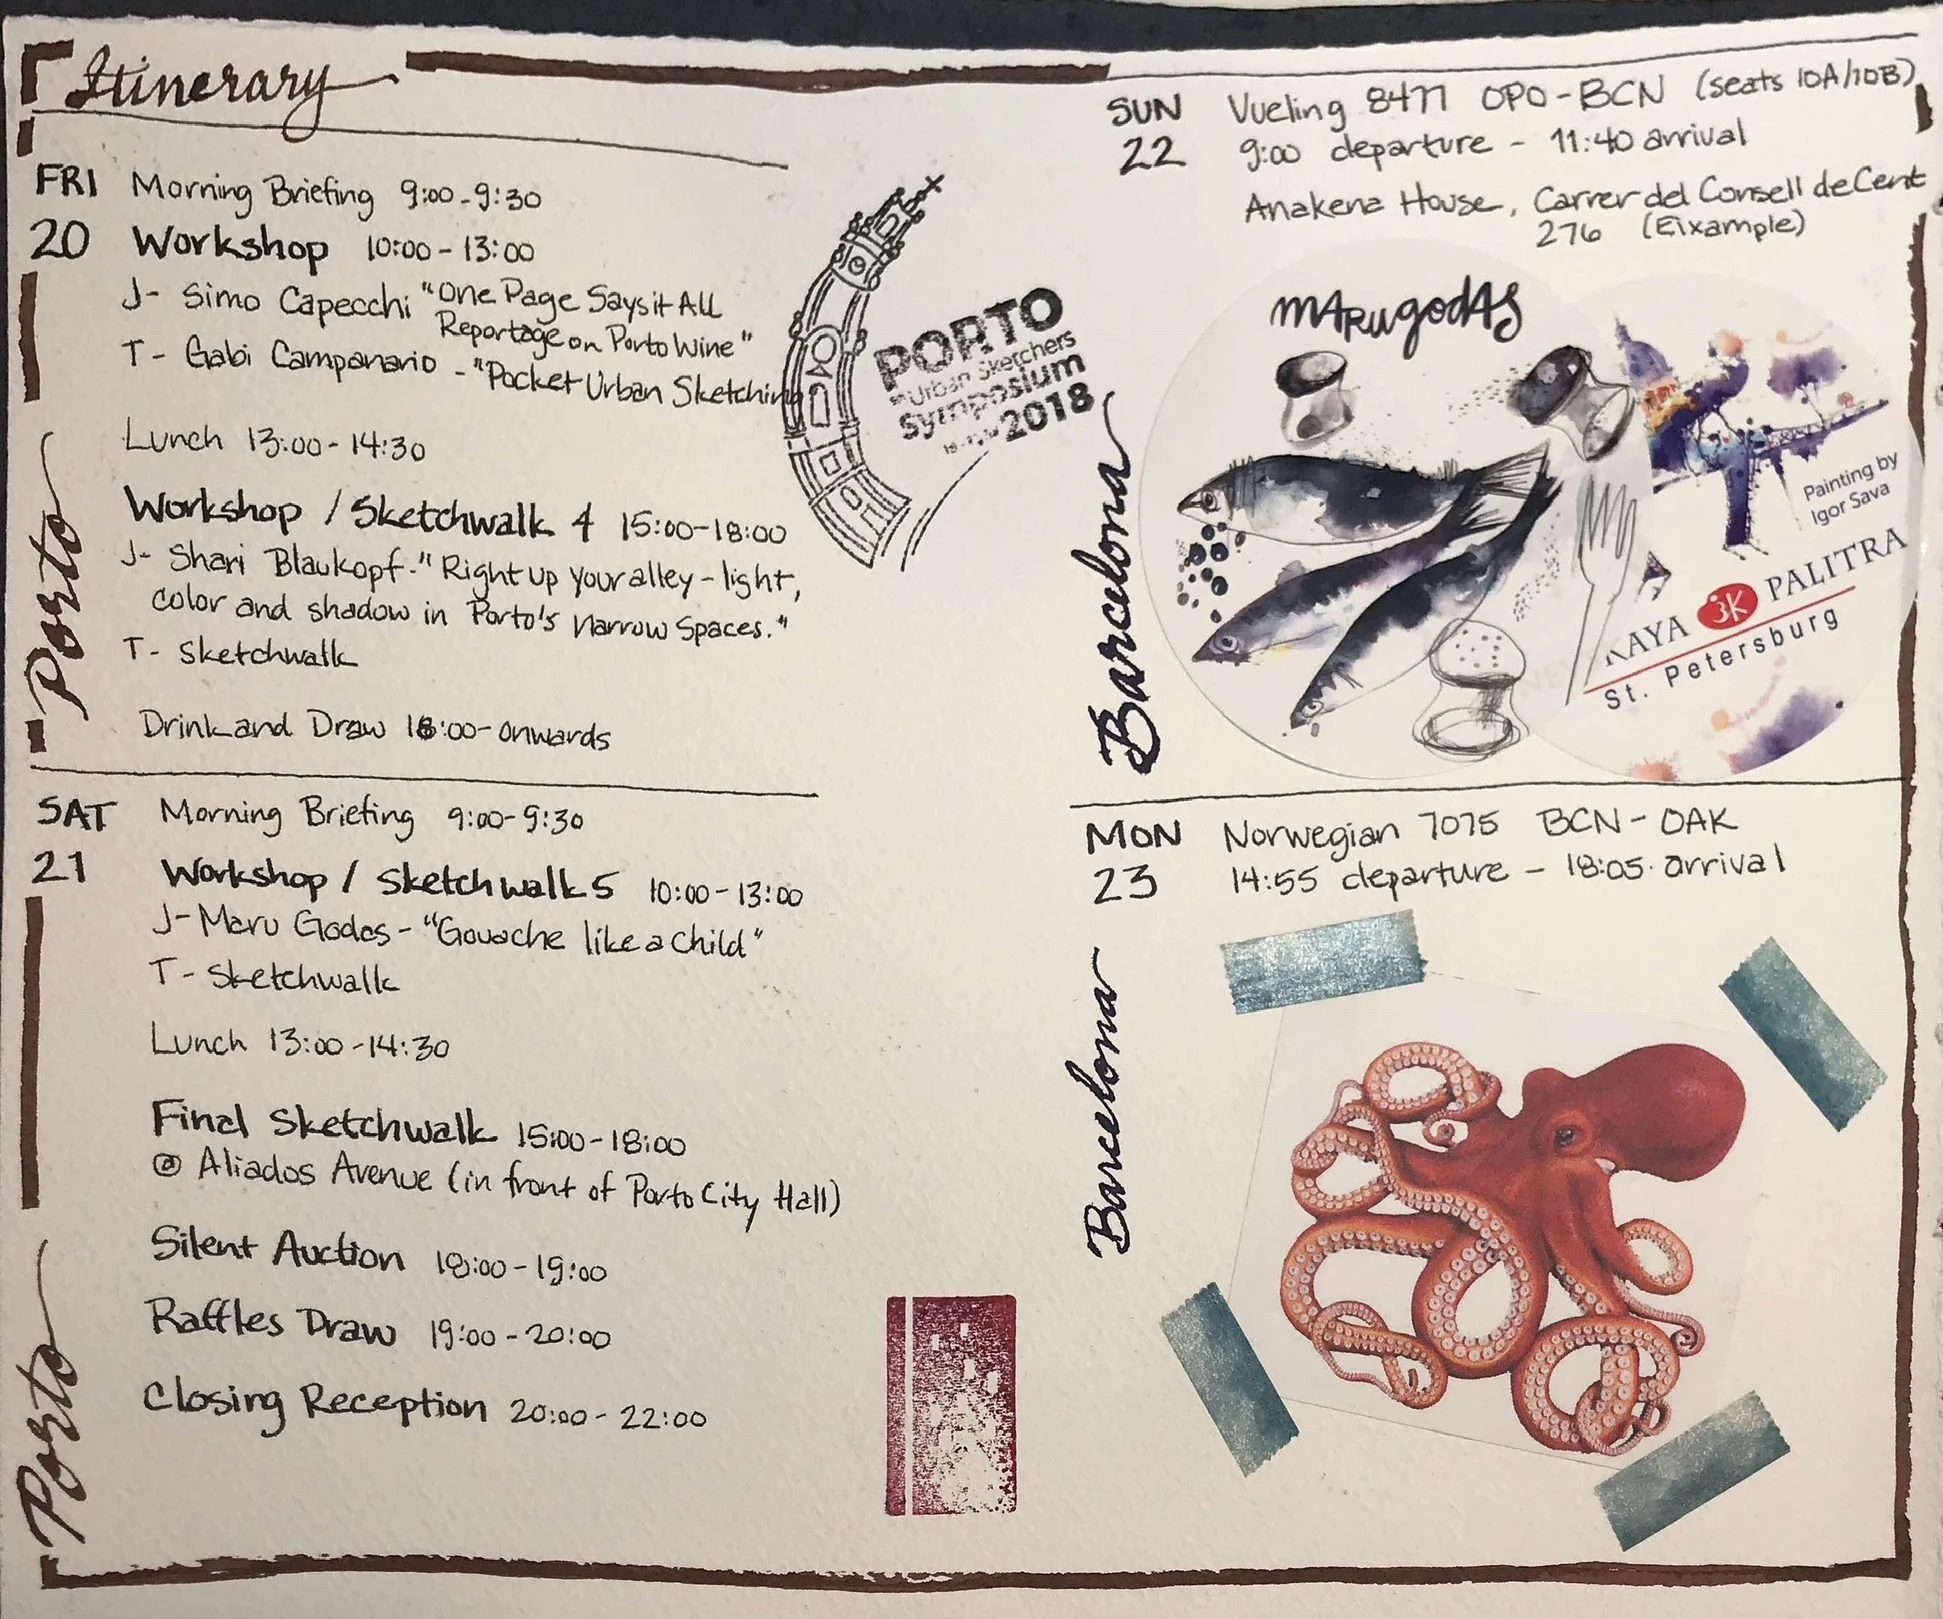 Itinerary
FRI
20
Morning Briefing 9:00-9:30
Workshop 10:00-13:00
J- Simo Capecchi "One Page Says it All
Reportage on Porto Wine"
T- Gabi Campanario - "Pocket Urban Sketching
Lunch 13:00-14:30
Workshop / Sketchwalk 4 15:00-18:00
J- Shari Blaukopf-"Right up your alley - light,
color and shadow in Porto's Narrow Spaces."
T- Sketchwalk
Drink and Draw 18:00-onwards
Porto
SAT
21
Morning Briefing 9:00-9:30
Workshop / Sketchwalk 5 10:00-13:00
J-Maru Godas - "Gouache like a child"
T- Sketchwalk
Lunch 13:00-14:30
Final Sketchwalk 15:00-18:00
@ Aliados Avenue (in front of Porto City Hall)
Silent Auction 18:00-19:00
Raffles Draw 19:00-20:00
Closing Reception 20:00-22:00
Porto
PORTO
Urban Sketchers
Symposium
2018
SUN
22
Vueling 8477 OPO-BCN (seats 10A/10B)
9:00 departure - 11:40 arrival
Anakena House, Carrer del Consell de Cent
276 (Eixample)
Barcelona
MARugodAS
Painting by
Igor Sava
KAYA ЗК PALITRA
St. Petersburg
MON
23
Norwegian 7075 BCN-OAK
14:55 departure - 18:05 arrival
Barcelona